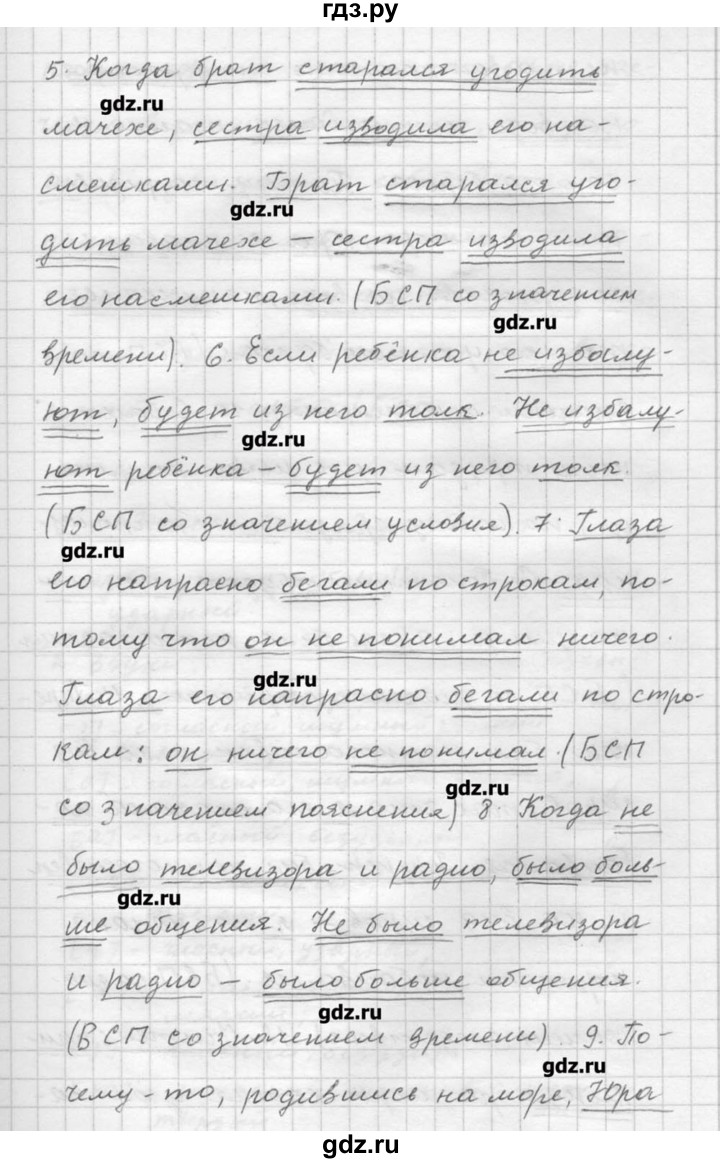 гдз.ру
5. Когда брат старался угодить
gdz.ru
мачехе, сестра изводила его на-
смешками. Брат старался уго-
gdz.ru
дить мачехе – сестра изводила
его насмешками. (БСП со значением
gdz.ru
времени). 6. Если ребёнка не избалу-
ют, будет из него толк. Не избалу-
gdz.ru
ют ребёнка – будет из него толк.
(БСП со значением условия). 7. Глаза
gdz.ru
его напрасно бегали по строкам, по-
тому что он не понимал ничего.
gdz.ru
Глаза его напрасно бегали по стро-
кам: он ничего не понимал. (БСП
gdz.ru
со значением пояснения) 8. Когда не
было телевизора и радио, было боль-
gdz.ru
ше общения. Не было телевизора
и радио – было больше общения.
gdz.ru
(БСП со значением времени). 9. По-
gdz.ru
чему-то, родившись на море, Юра
gdz.ru